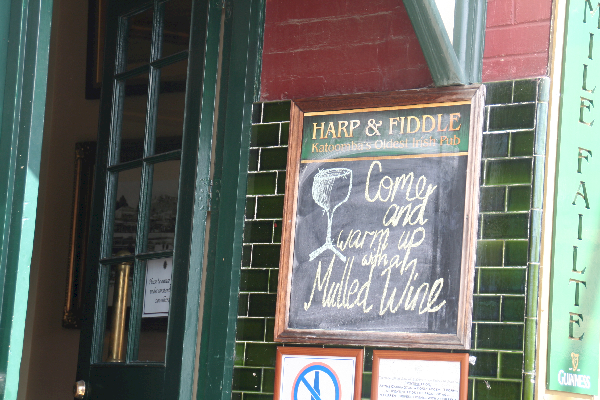 HARP & FIDDLE
Katoomba's Oldest Irish Pub
Come
and
warm up
with a
Mulled Wine
MILE FAILTE
GUINNESS